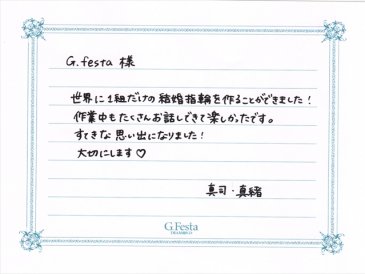 G.festa 様
世界に1組だけの結婚指輪を作ることができました！
作業中もたくさんお話しできて楽しかったです。
すてきな思い出になりました！
大切にします♡
真司・真緒
G.Festa